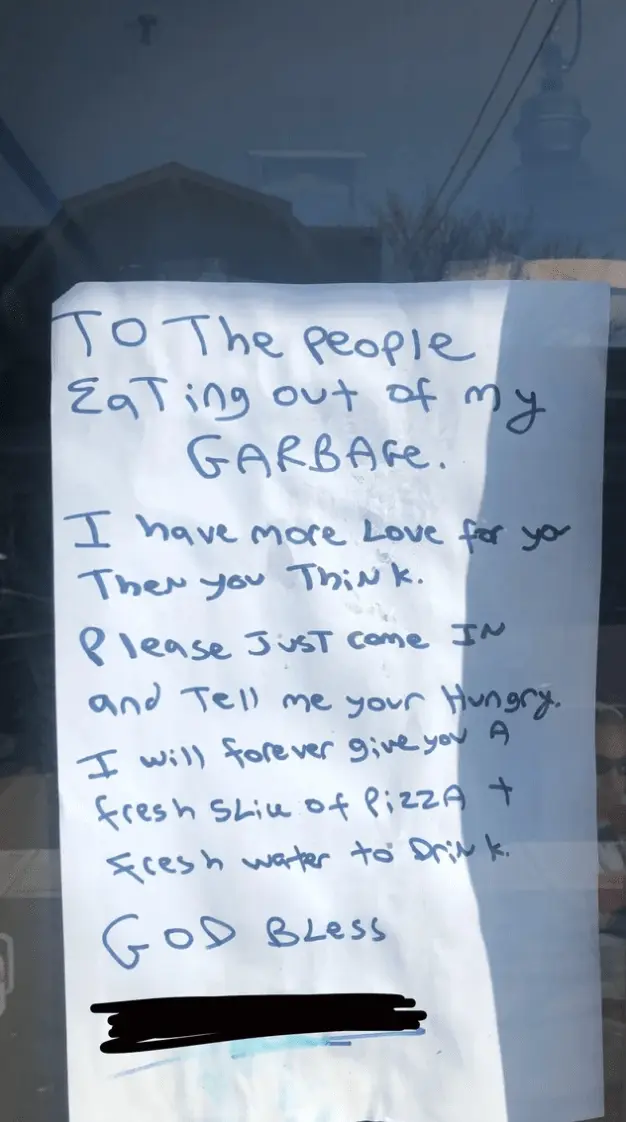 To The people
EaTing out of my
GARBAGe.
I have more Love for you
Then you Think.
Please JUST come IN
and Tell me your Hungry.
I will forever give you A
fresh SLice of PizzA +
fresh water to DriNk.
GOD BLess